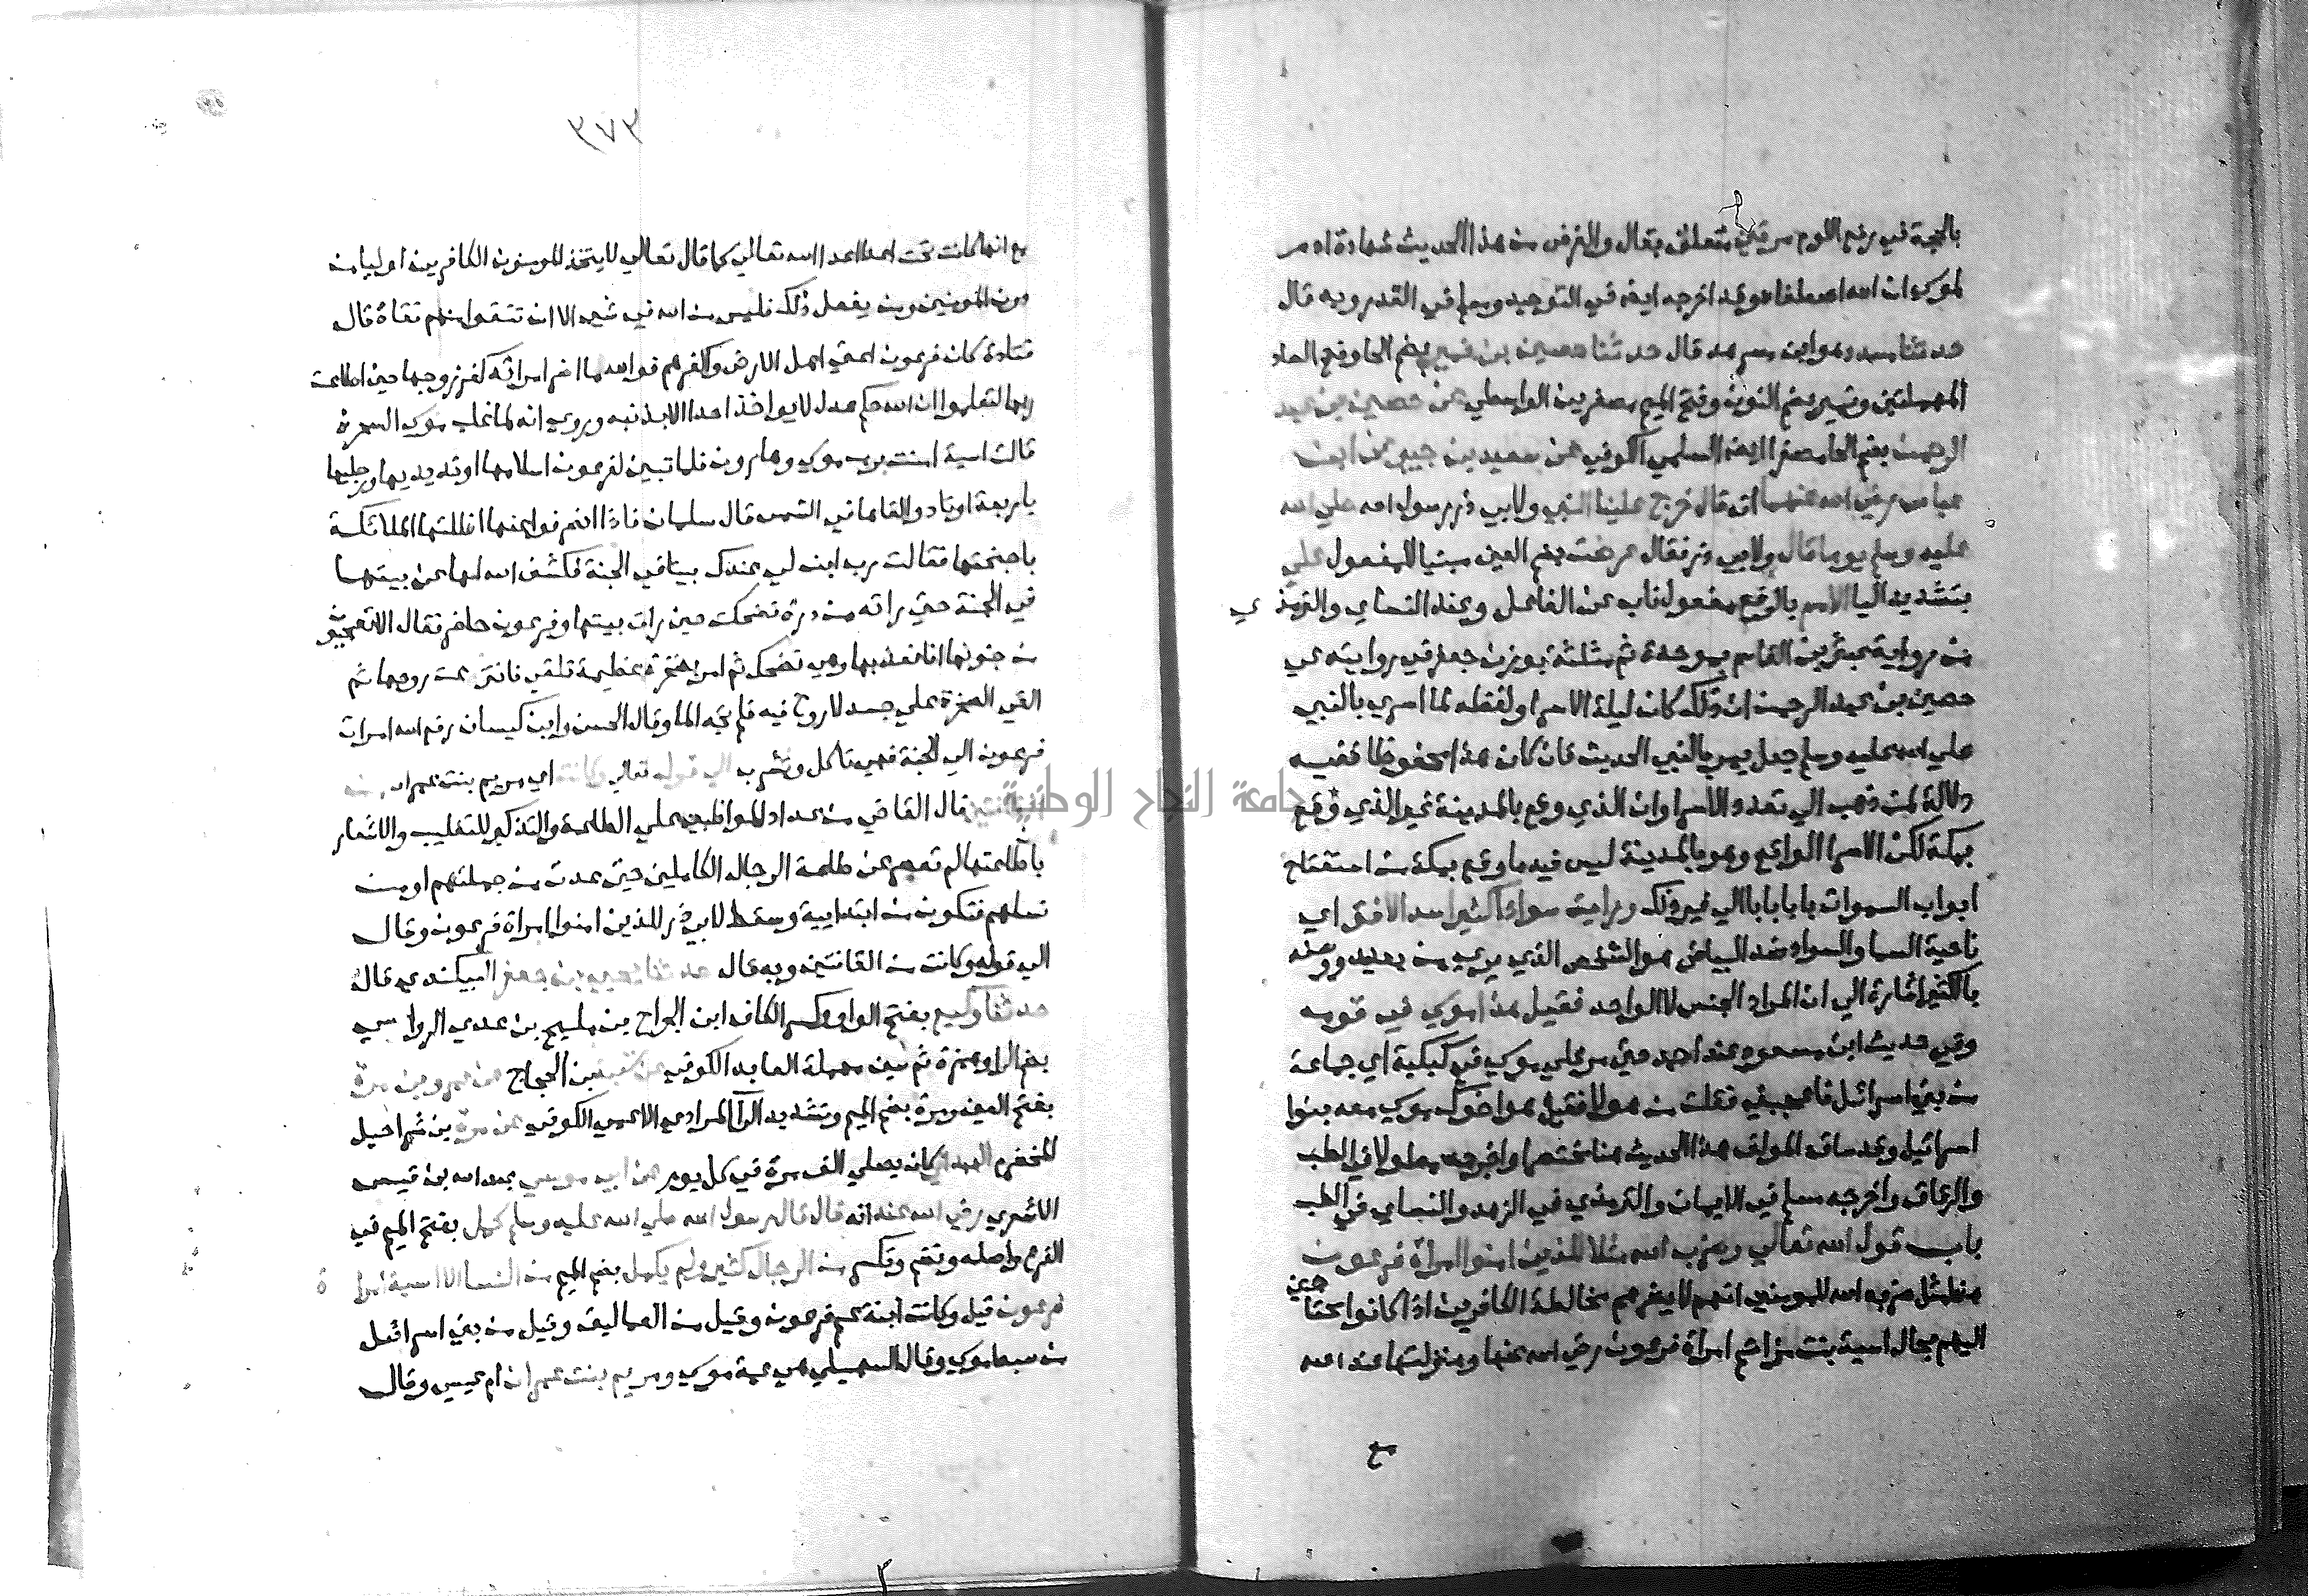 بالحجة في رفع اللوم مرتين متعلق بقال والغرض من هذا الحديث شهادة ادم
لموسى ان الله اصطفاه وقد اخرجه ايضا في التوحيد ومسلم في القدر وبه قال
حدثنا مسدد هو ابن مسرهد قال حدثنا حصين بن نمير بضم الحا وفتح الصاد
المهملتين ونمير بضم النون وفتح الميم مصغرين الواسطي عن حصين بن عبد
الرحمن بضم الحا مصغرا ايضا السلمي الكوفي عن سعيد بن جبير عن ابن
عباس رضي الله عنهما انه قال خرج علينا النبي ولابي ذر رسول الله صلى الله
عليه وسلم يوما قال ولابي ذر فقال عرضت بضم العين مبنيا للمفعول علي
بتشديد اليا الامم بالرفع مفعول ناب عن الفاعل وعند النساي والترمذي
من رواية عبثر بن القاسم بموحدة ثم مثلثة بوزن جعفر في روايته عن
حصين بن عبد الرحمن ان ذلك كان ليلة الاسرا ولفظه لما اسري بالنبي
صلي الله عليه وسلم جعل يمر بالنبي الحديث فان كان هذا محفوظا ففيه
دلالة لمن ذهب الي تعدد الاسرا وان الذي وقع بالمدينة غير الذي وقع
بمكة لكن الاسرا الواقع وهو بالمدينة ليس فيه ما وقع بمكة من استفتاح
ابواب السموات بابا بابا الي غير ذلك ورايت سوادا كثيرا سد الافق اي
ناحية السما والسواد ضد البياض هو الشخص الذي يري من بعيد ووصفه
بالكثير اشارة الي ان المراد الجنس لا الواحد فقيل هذا موسي في قومه
وفي حديث ابن مسعود عند احمد حتي مر علي موسي في كبكبة اي جماعة
من بني اسرائل فاعجبني فقلت من هولا فقيل هو اخوك موسي معه بنوا
اسرائيل وقد ساق المولف هذا الحديث هنا مختصرا واخرجه مطولا في الطب
والرقاق واخرجه مسلم في الايمان والترمذي في الزهد والنساي في الطب
باب قول الله تعالي وضرب الله مثلا للذين امنوا امراة فرعون
هذا مثل ضربه الله للمومنين انهم لا يضرهم مخالطة الكافرين اذا كانوا محتاجين
اليهم بحال اسية بنت مزاحم امراة فرعون رضي الله عنها ومنزلتها عند الله
مع
٣٧٣
مع انها كانت تحت اعدا اعدا الله تعالي كما قال تعالي لا يتخذ المومنون الكافرين اوليا من
دون المومنين ومن يفعل ذلك فليس من الله في شي الا ان تتقوا منهم تقاة قال
قتادة كان فرعون اعتي اهل الارض واكفرهم فوالله ما ضر امراته كفر زوجها حين اطاعت
ربها لتعلموا ان الله حكم عدل لا يواخذ احدا الا بذنبه وروي انه لما غلب موسي السحرة
قالت اسية امنت برب موسي وهارون فلما تبين لفرعون اسلامها اوتد يديها ورجليها
باربعة اوتاد والقاها في الشمس قال سلمان فاذا انصرفوا عنها اظلتها الملائكة
باجنحتها فقالت رب ابن لي عندك بيتا في الجنة فكشف الله لها عن بيتها
في الجنة حتي راته من درة فضحكت حين رات بيتها وفرعون حاضر فقال الا تعجبون
من جنونها انا نعذبها وهي تضحك ثم امر بصخرة عظيمة تلقي فانتزعت روحها ثم
القي الصخرة علي جسد لا روح فيه فلم تجد الما وقال الحسن وابن كيسان رفع الله امراة
فرعون الي الجنة فهي تاكل وتشرب الي قوله تعالي وكانت اي مريم بنت عمران من
القانتين قال القاضي من عداد المواظبين علي الطاعة والتذكير للتغليب والاشعار
بان طاعتها لم تقصر عن طاعة الرجال الكاملين حتي عدت من جملتهم او من
نسلهم فتكون من ابتدايية وسقط لابي ذر للذين امنوا امراة فرعون وقال
الي قوله وكانت من القانتين وبه قال حدثنا يحيي بن جعفر البيكندي قال
حدثنا وكيع بفتح الواو وكسر الكاف ابن الجراح بن مليح بن عدي الرواسي
بضم الرا وهمزة ثم سين مهملة العابد الكوفي عن شعبة بن الحجاج عن عمرو بن مرة
بفتح العين ومرة بضم الميم وتشديد الرآ المرادي الاعمي الكوفي عن مرة بن شراحيل
المخضرم الهمداني كان يصلي الف مرة في كل يوم عن ابي موسي عبد الله بن قيس
الاشعري رضي الله عنه انه قال قال رسول الله صلي الله عليه وسلم كمل بفتح الميم في
الفرع واصله وتضم وتكسر من الرجال كثير ولم يكمل بضم الميم من النسا الا اسية امراة
فرعون قيل وكانت ابنة عم فرعون وقيل من العماليق وقيل من بني اسرائيل
من سبط موسي وقال السهيلي هي عمة موسي ومريم بنت عمران ام عيسي وقال
جامعة النجاح الوطنية